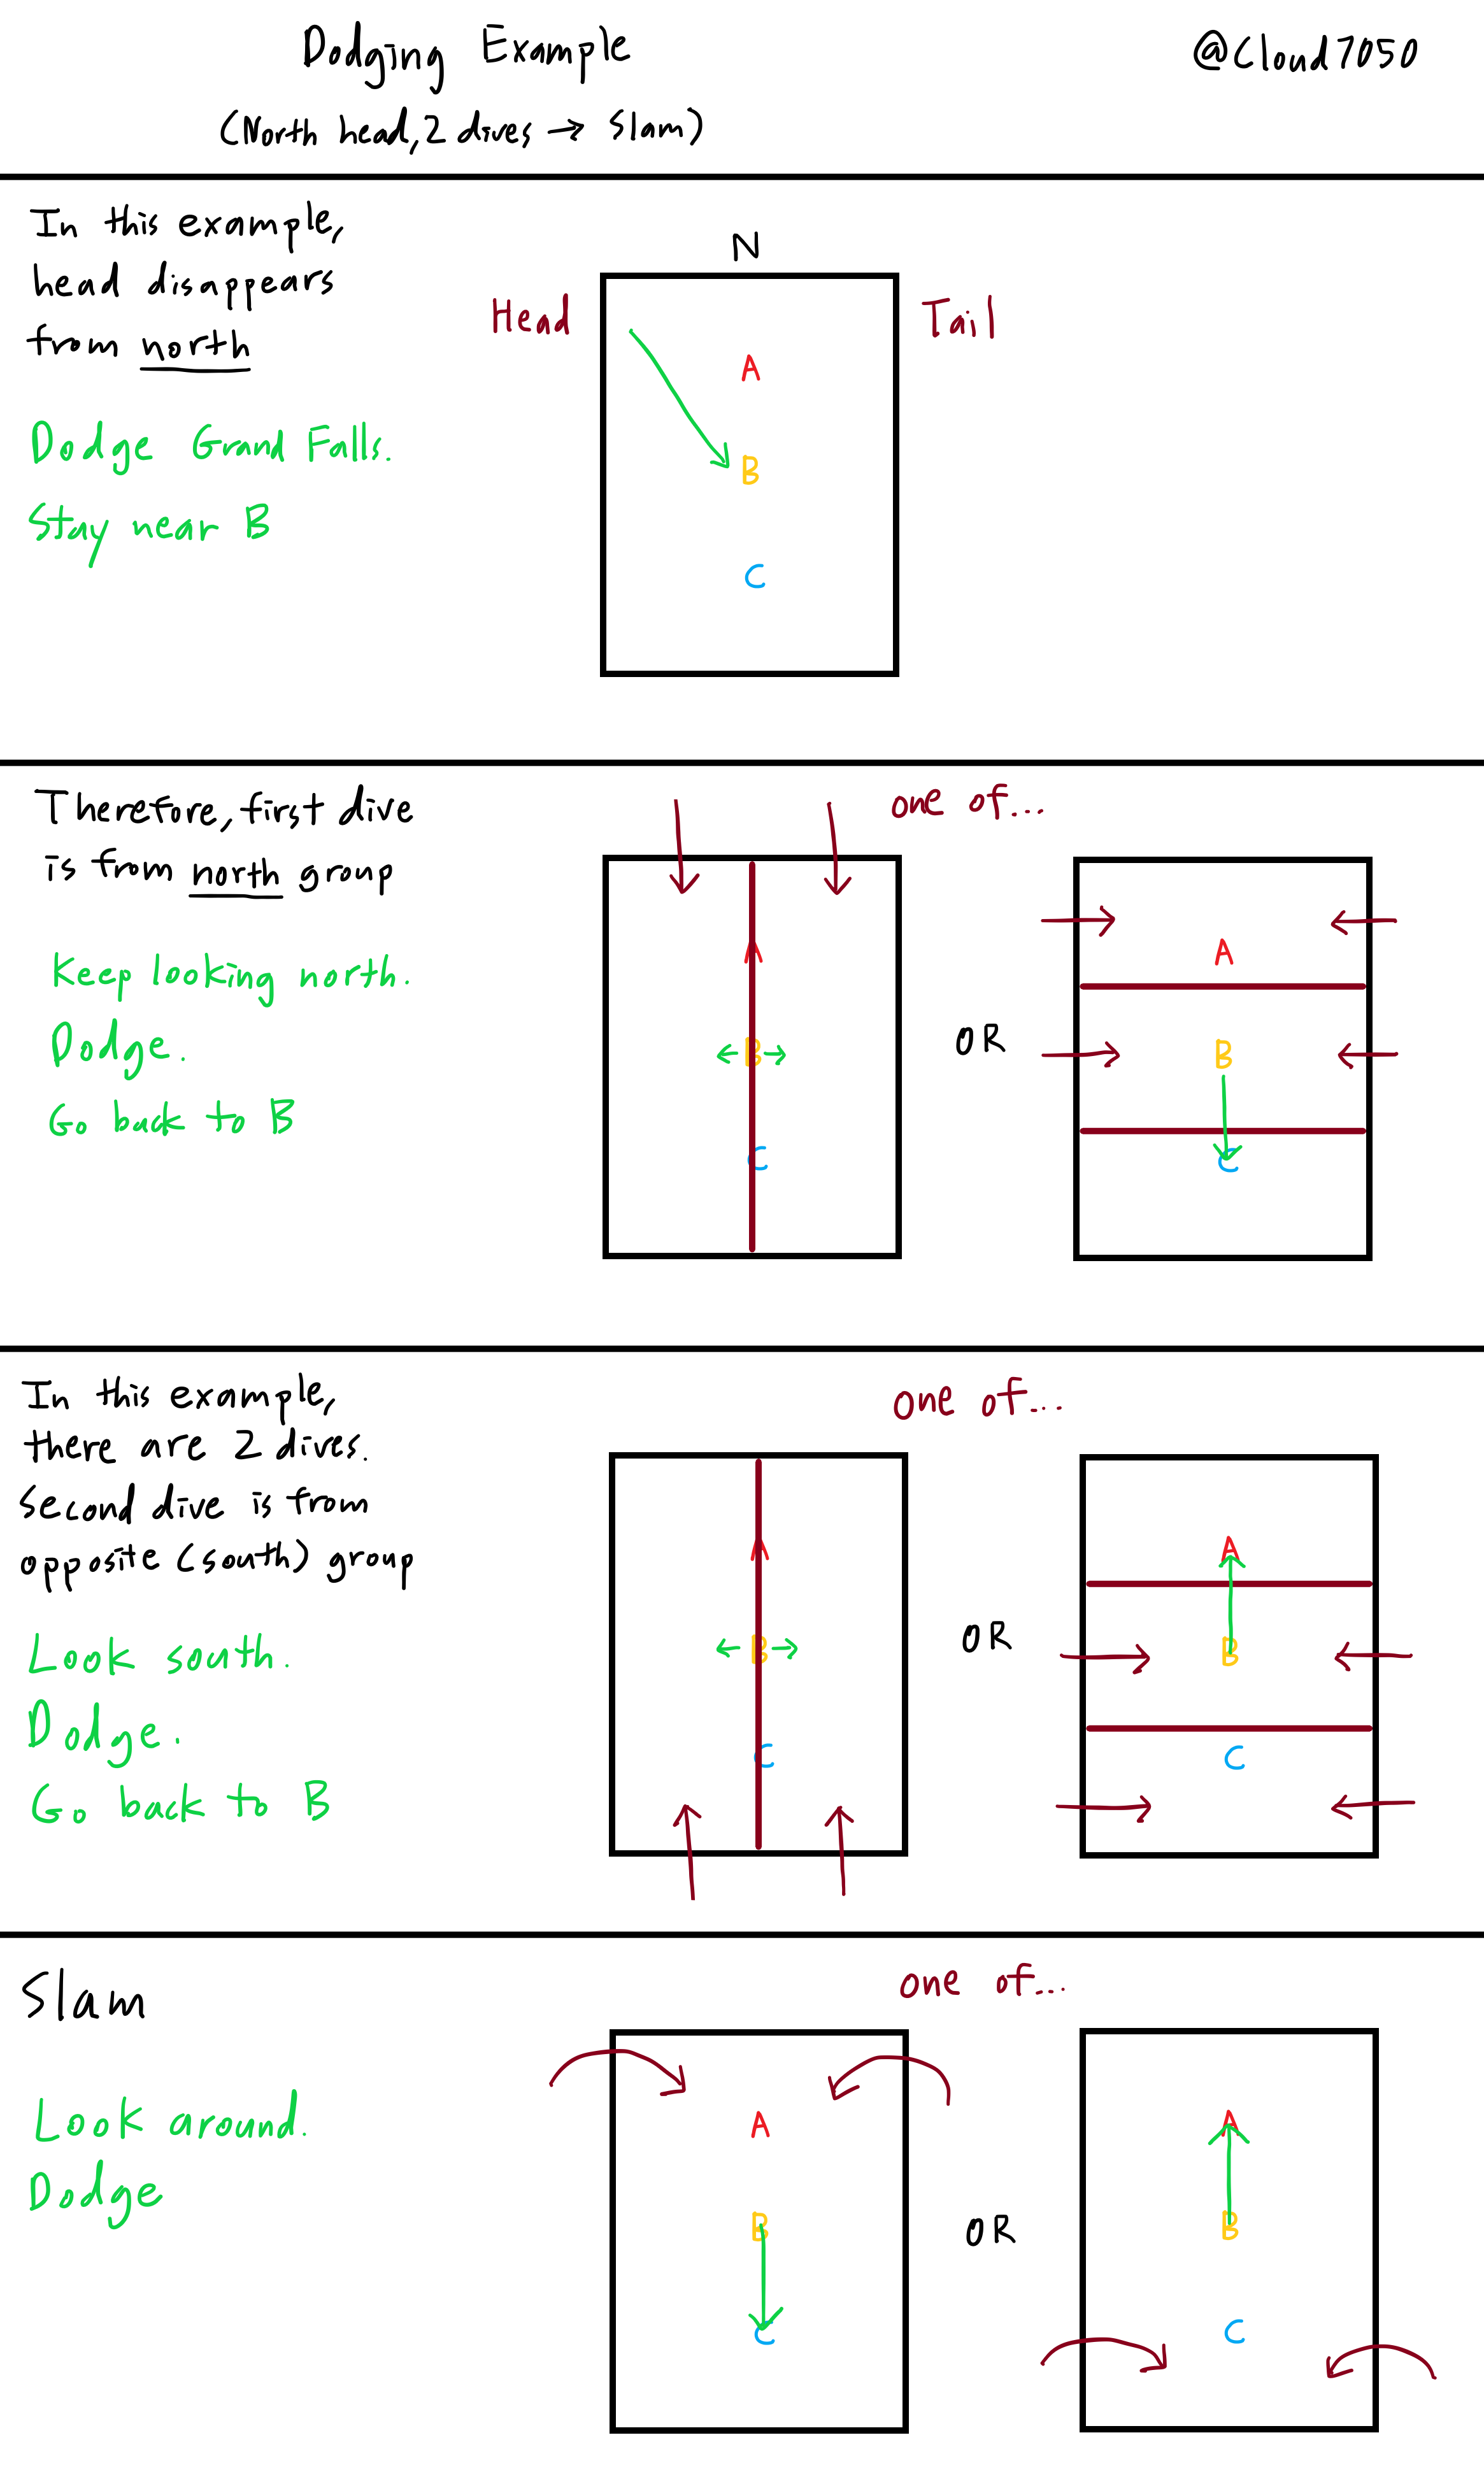 Dodging Example
@Cloud7050
(North head, 2 dives → Slam)
In this example,
head disappears
from north
Dodge Grand Falls.
Stay near B
N
Head
Tail
A
B
C
Therefore, first dive
is from north group
Keep looking north.
Dodge.
Go back to B
one of...
A
B
C
OR
A
B
C
In this example,
there are 2 dives.
Second dive is from
opposite (south) group
Look south.
Dodge.
Go back to B
one of...
A
B
C
OR
A
B
C
Slam
Look around.
Dodge
one of...
A
B
C
OR
A
B
C